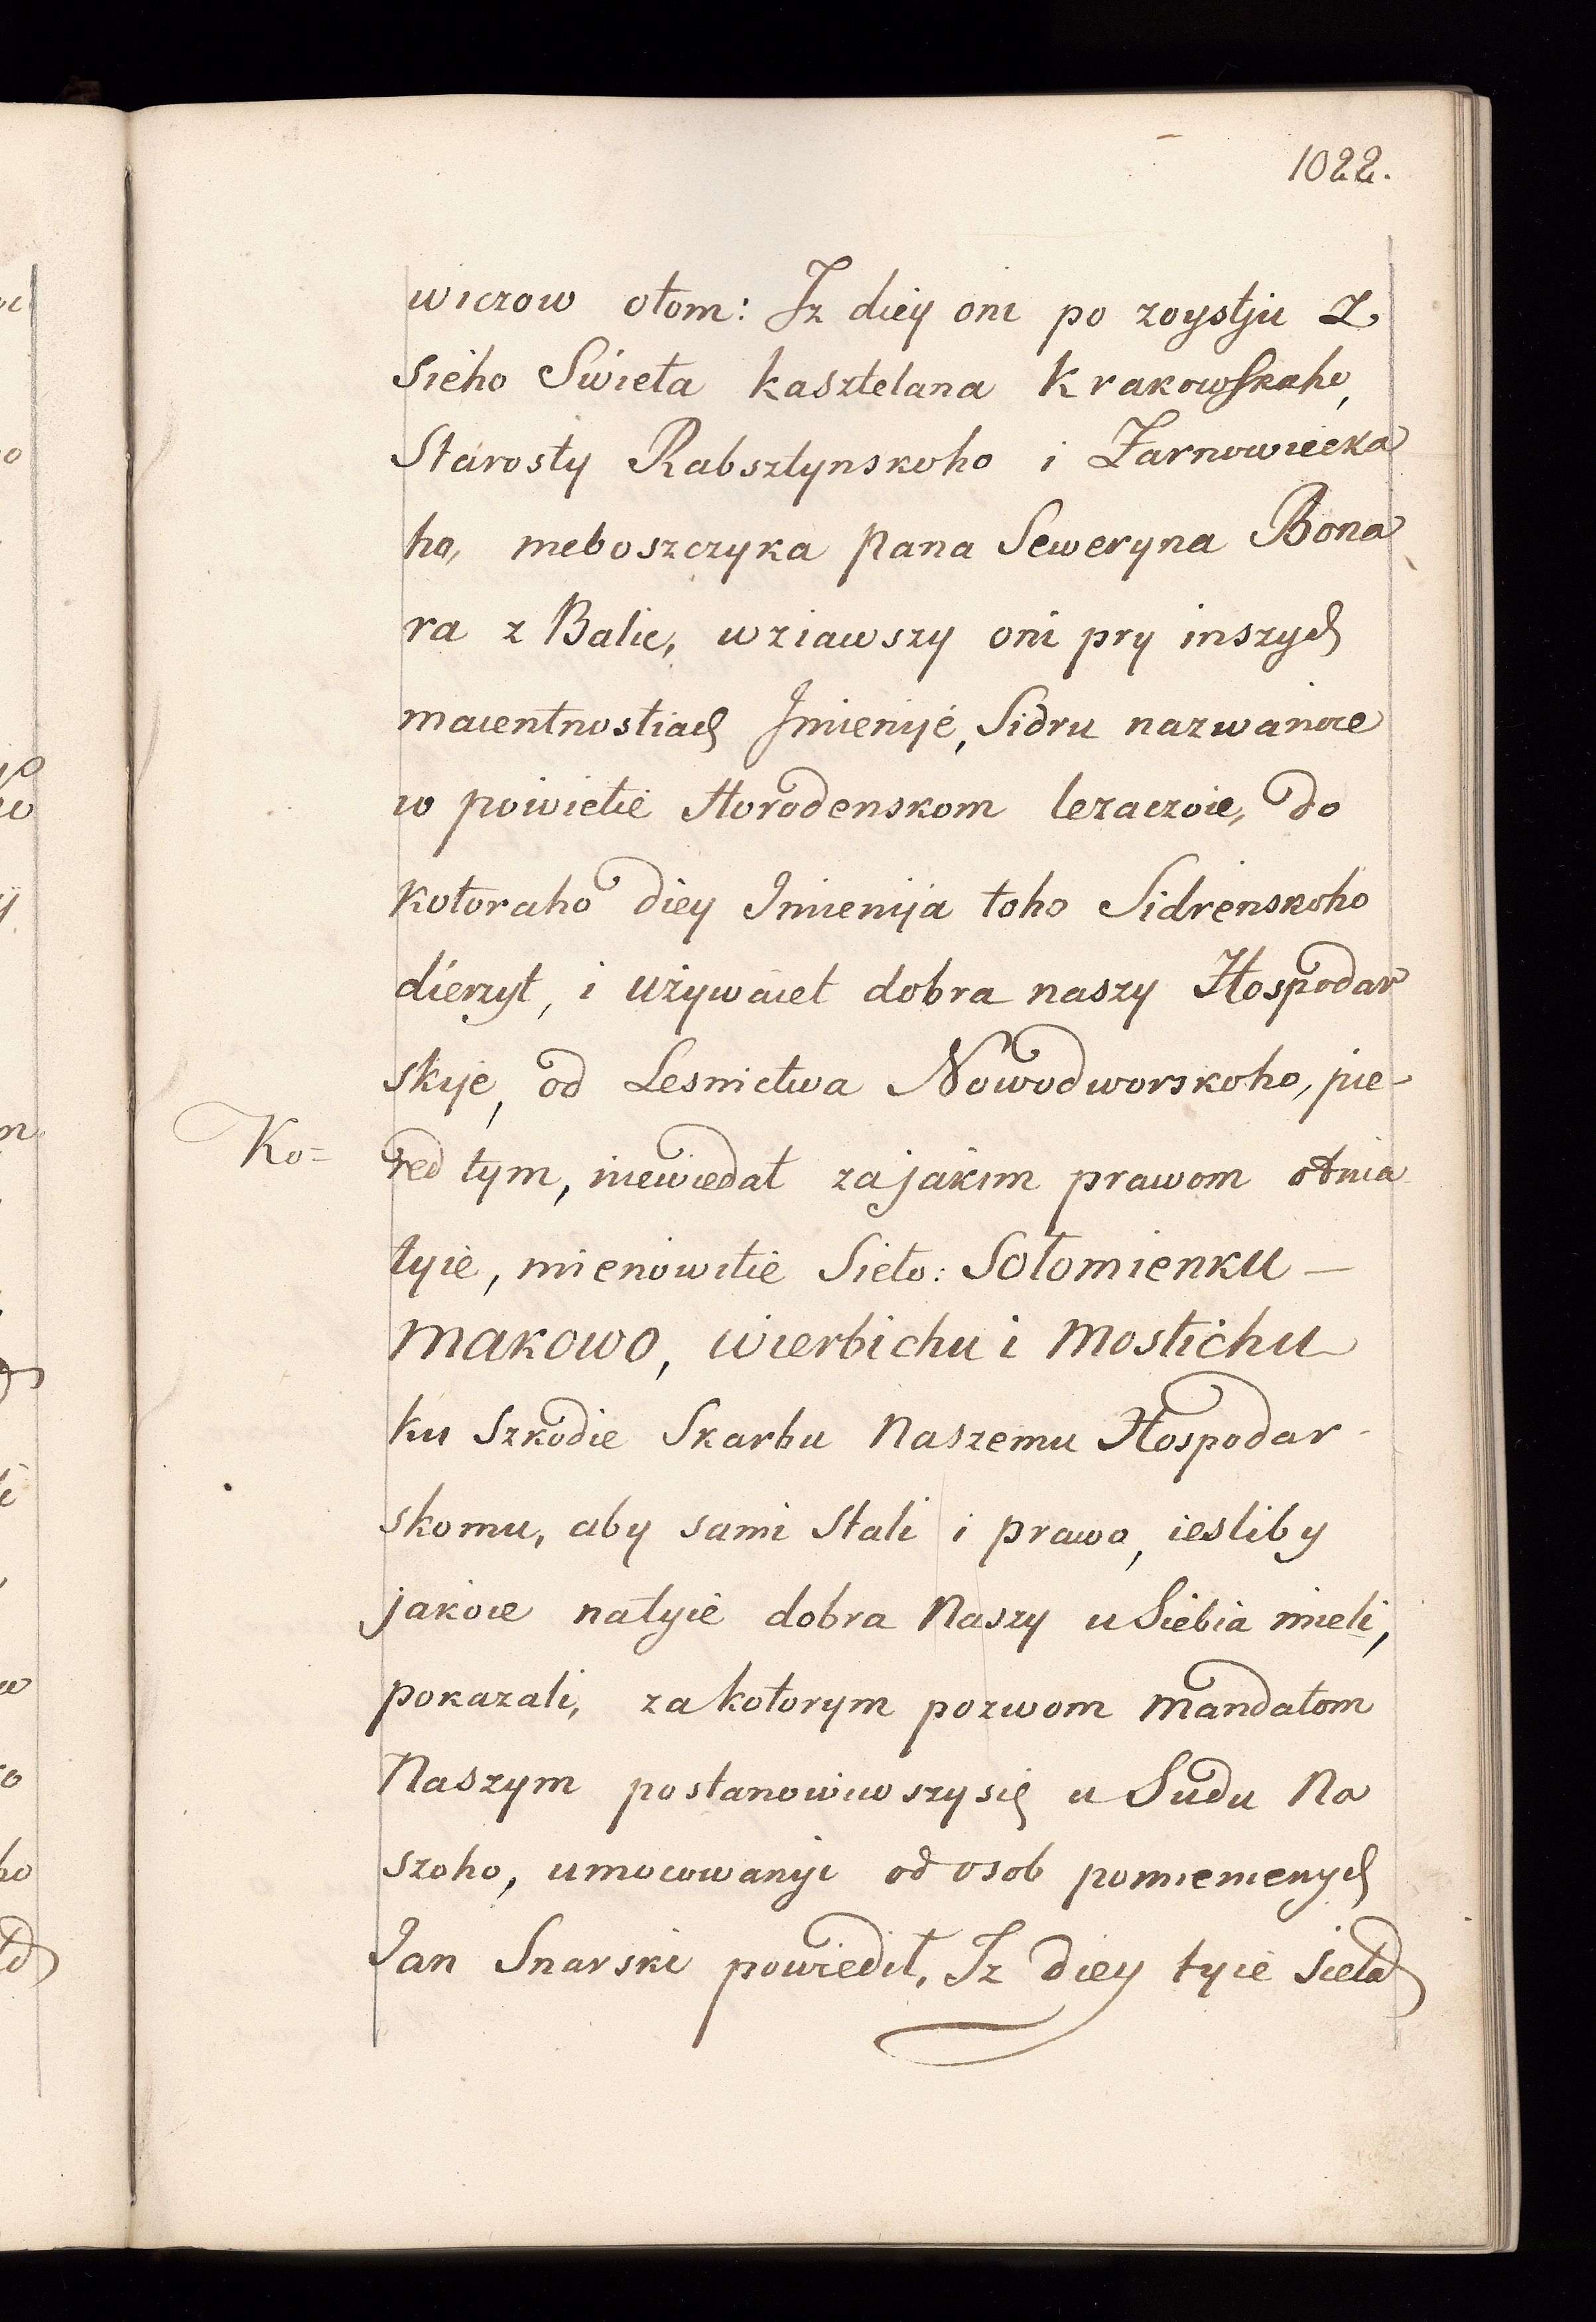 1022.
wiczow otom: Iz diey oni po zoystju Z
sieho Swieta kasztelana Krakowskaho,
Starosty Rabsztynskoho i Zarnowiecka
ho, nieboszczyka pana Seweryna Bona
ra z Balic, wziawszy oni pry inszych
maientnostiach Imienije, Sidru nazwanoie
w powietie Horodenskom lezaczoie, do
kotoraho diey Imienija toho Sidrenskoho
dierzyt, i używaiet dobra naszy Hospodar
skije, od Lesnictwa Nowodworskoho, pie-
Ko= red tym, niewiedat za jakim prawom otnia
tyie, mienowitie Sieło: Sołomienku —
Makowo, Wierbichu i Mostichu
ku Szkodie Skarbu Naszemu Hospodar-
skomu, aby sami Stali i prawo, iesliby
jakoie natyie dobra Naszy u Siebia mieli,
pokazali, za kotorym pozwom Mandatom
Naszym postanowiwszysię u Sudu Na
szoho, umocowanyi od osob pomienienych
Jan Snarski powiedił, Iz diey tyie Sieła